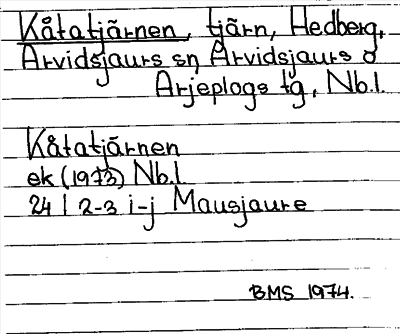 Kåtatjärnen, tjärn, Hedberg,
Arvidsjaurs sn Arvidsjaurs o
Arjeplogs tg, Nb.l.
Kåtatjärnen
ek (1973) Nb.l
24 I 2-3 i-j Mausjaure
BMS 1974.